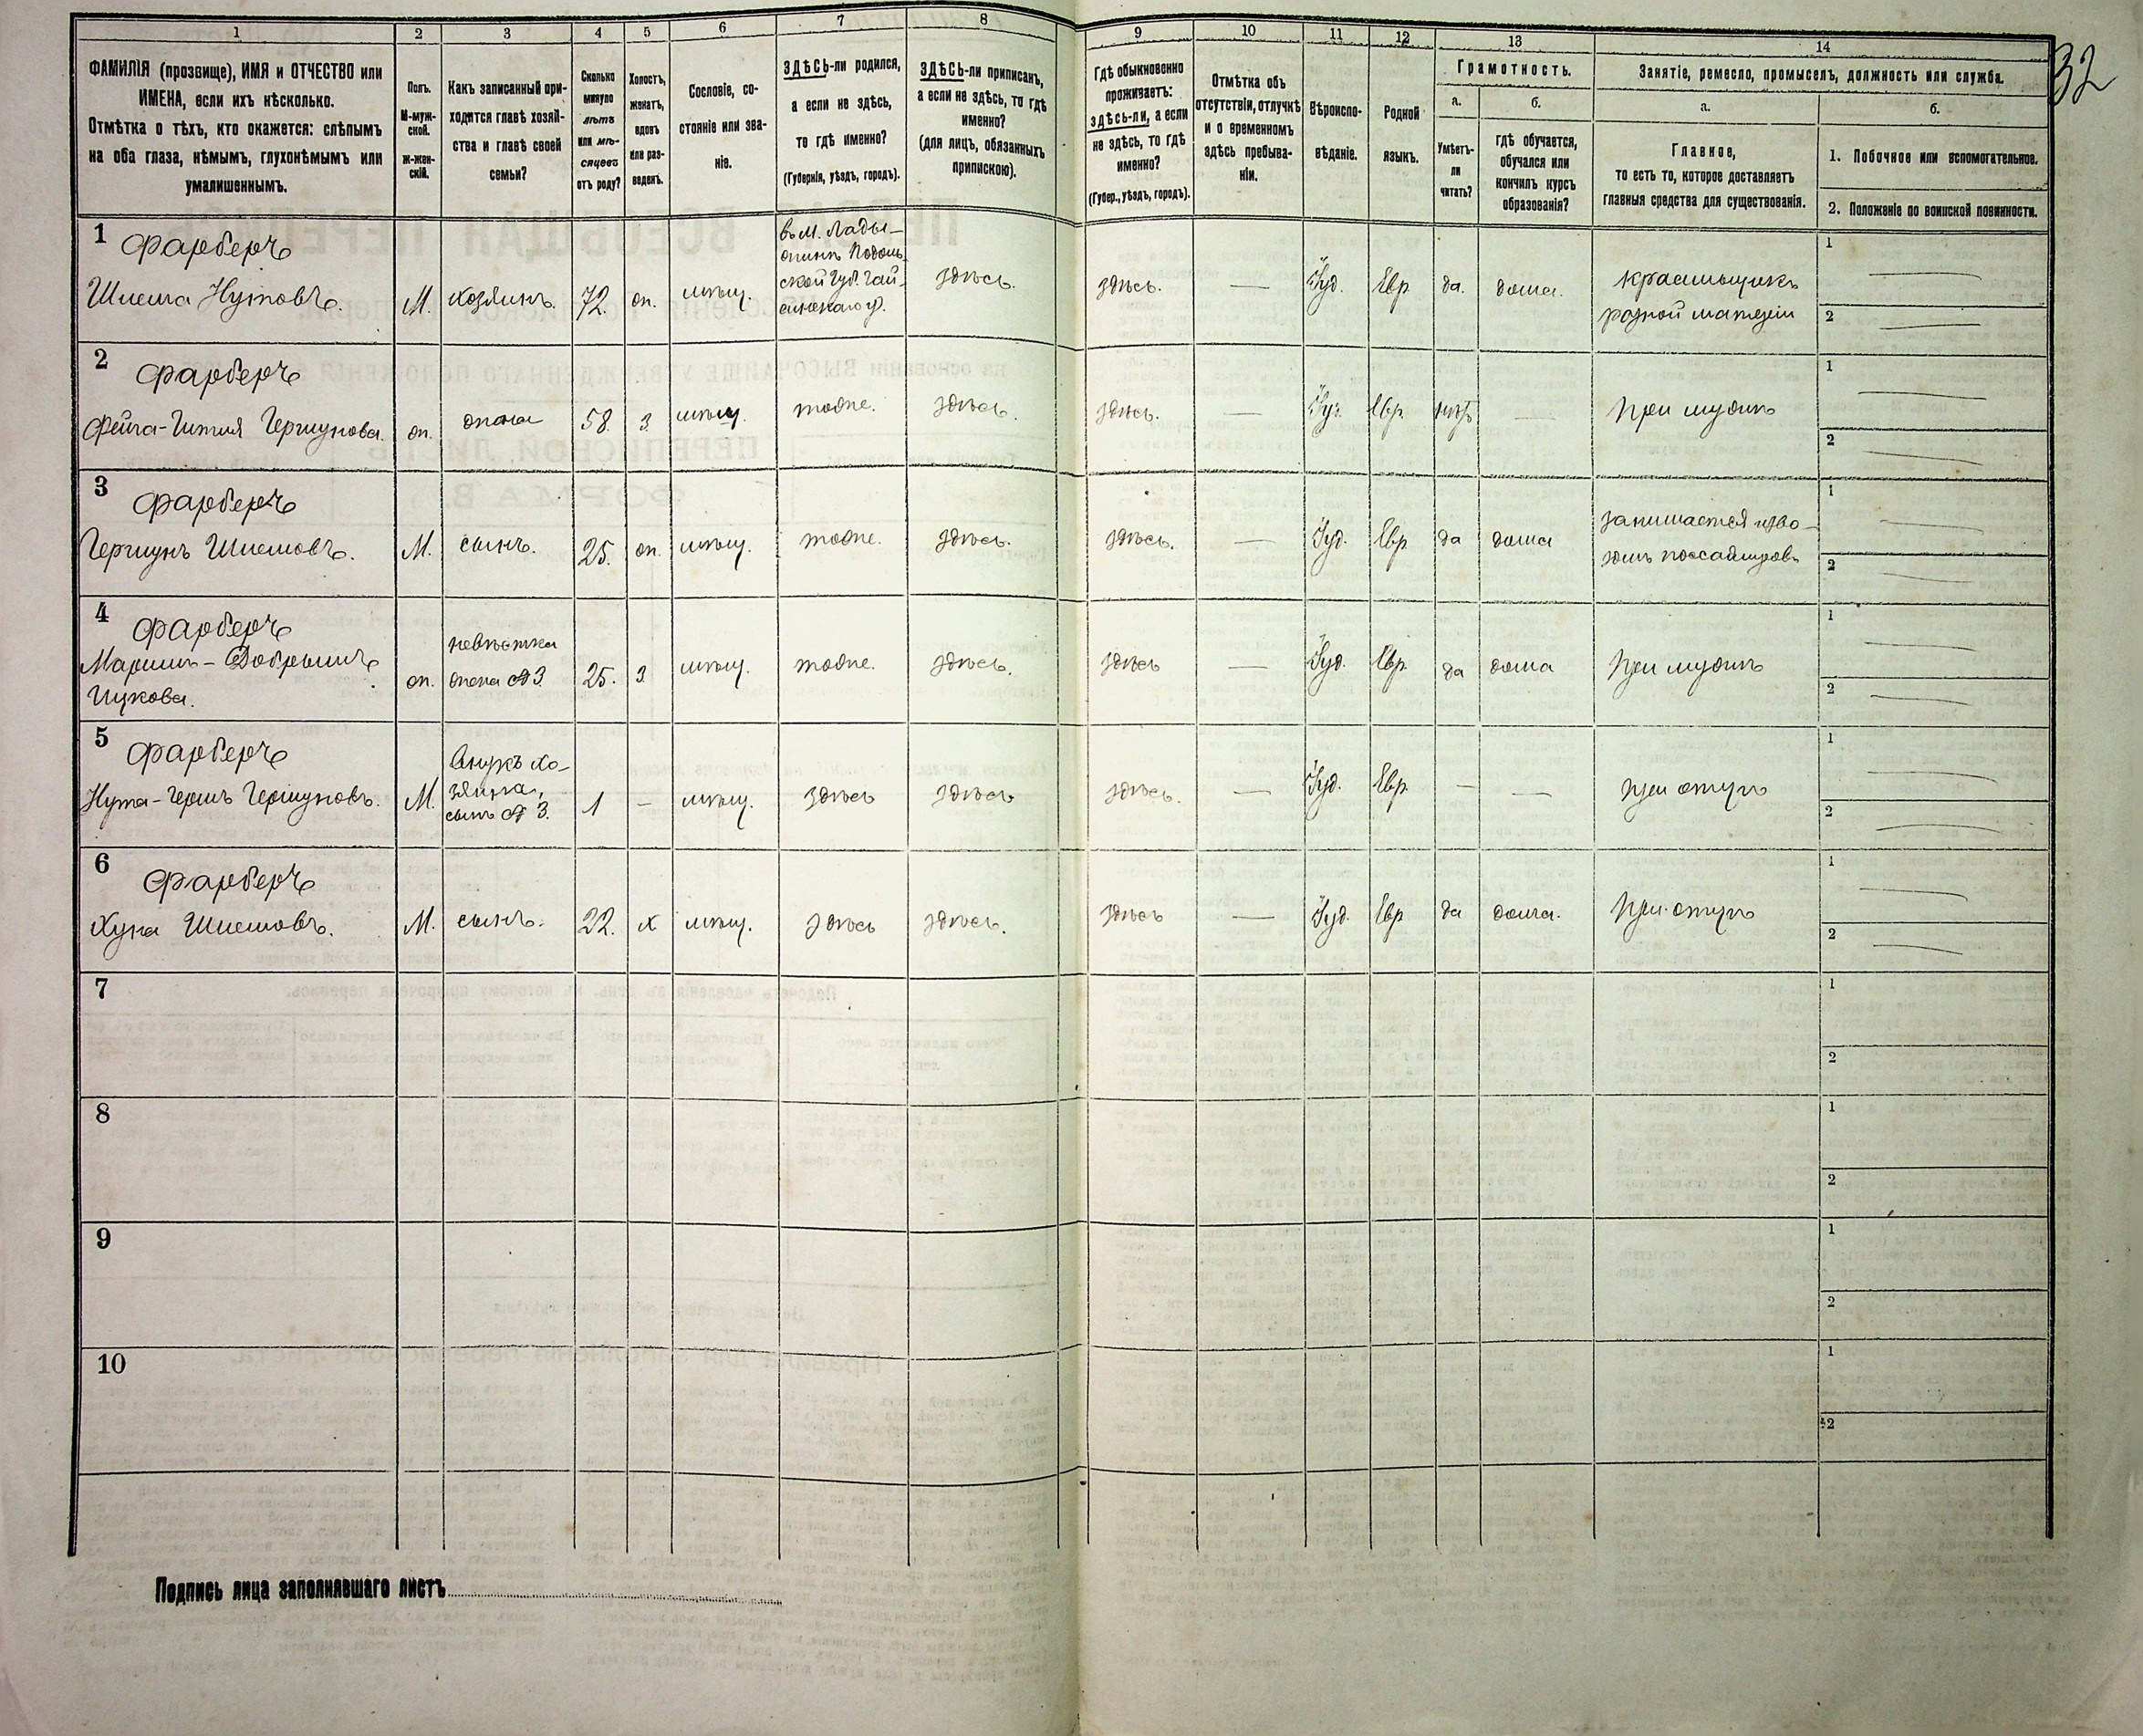 1 2 3 4 5 6 7 8 9 10 11 12 13 14
32
ФАМИЛІЯ (прозвище), ИМЯ и ОТЧЕСТВО или
ИМЕНА, если ихъ нѣсколько.
Отмѣтка о тѣхъ, кто окажется: слѣпымъ
на оба глаза, нѣмымъ, глухонѣмымъ или
умалишеннымъ.
Полъ.
М-муж-
ской.
ж-жен-
скій.
Какъ записанный при-
ходится главѣ хозяй-
ства и главѣ своей
семьи?
Сколько
минуло
лѣтъ
или мѣ-
сяцевъ
отъ роду?
Холостъ,
женатъ,
вдовъ
или раз-
веденъ.
Сословіе, со-
стояніе или зва-
ніе.
ЗДѢСЬ-ли родился,
а если не здѣсь,
то гдѣ именно?
(Губернія, уѣздъ, городъ).
ЗДѢСЬ-ли приписанъ,
а если не здѣсь, то гдѣ
именно?
(для лицъ, обязанныхъ
припискою).
Гдѣ обыкновенно
проживаетъ:
здѣсь-ли, а если
не здѣсь, то гдѣ
именно?
(Губер., уѣздъ, городъ).
Отмѣтка объ
отсутствіи, отлучкѣ
и о временномъ
здѣсь пребыва-
ніи.
Вѣроиспо-
вѣданіе.
Родной
языкъ.
Грамотность.
а.
Умѣетъ-
ли
читать?
б.
гдѣ обучается,
обучался или
кончилъ курсъ
образованія?
Занятіе, ремесло, промыселъ, должность или служба.
а.
Главное,
то есть то, которое доставляетъ
главныя средства для существованія.
б.
1. Побочное или вспомогательное.
2. Положеніе по воинской повинности.
1
Фарберъ
Шлема Нутовъ.
М. хозяинъ. 72. ж. мѣщ.
въ м. Лады-
жинъ Подоль-
ской Губ. Гай-
синскаго у.
здѣсь. здѣсь. — Іуд. Евр. да. дома.
красильщикъ
разной матеріи
1 —
2 —
2
Фарберъ
Фейга-Гитля Гершунова.
ж. жена 58 з. мѣщ. тоже. здѣсь. здѣсь. — Іуд. Евр. нѣтъ — при мужѣ
1 —
2 —
3
Фарберъ
Гершунъ Шлемовъ.
М. сынъ. 25. ж. мѣщ. тоже. здѣсь. здѣсь. — Іуд. Евр. да дома
занимается изво-
зомъ пассажировъ
1 —
2 —
4
Фарберъ
Ицкова.
невѣстка
жена №3.
ж. 25. з. мѣщ. тоже. здѣсь. здѣсь — Іуд. Евр. да дома при мужѣ
1 —
2 —
5
Фарберъ
Нута-Гершъ Гершуновъ.
М.
внукъ хо-
зяина,
сынъ № 3.
1 — мѣщ. здѣсь здѣсь здѣсь. — Іуд. Евр. — — при отцѣ
1 —
2 —
6
Фарберъ
Хуна Шлемовъ.
М. сынъ. 22. х мѣщ. здѣсь здѣсь. здѣсь — Іуд. Евр да дома. при отцѣ
1 —
2 —
7
1
2
8
1
2
9
1
2
10
1
2
Подпись лица заполнявшаго листъ